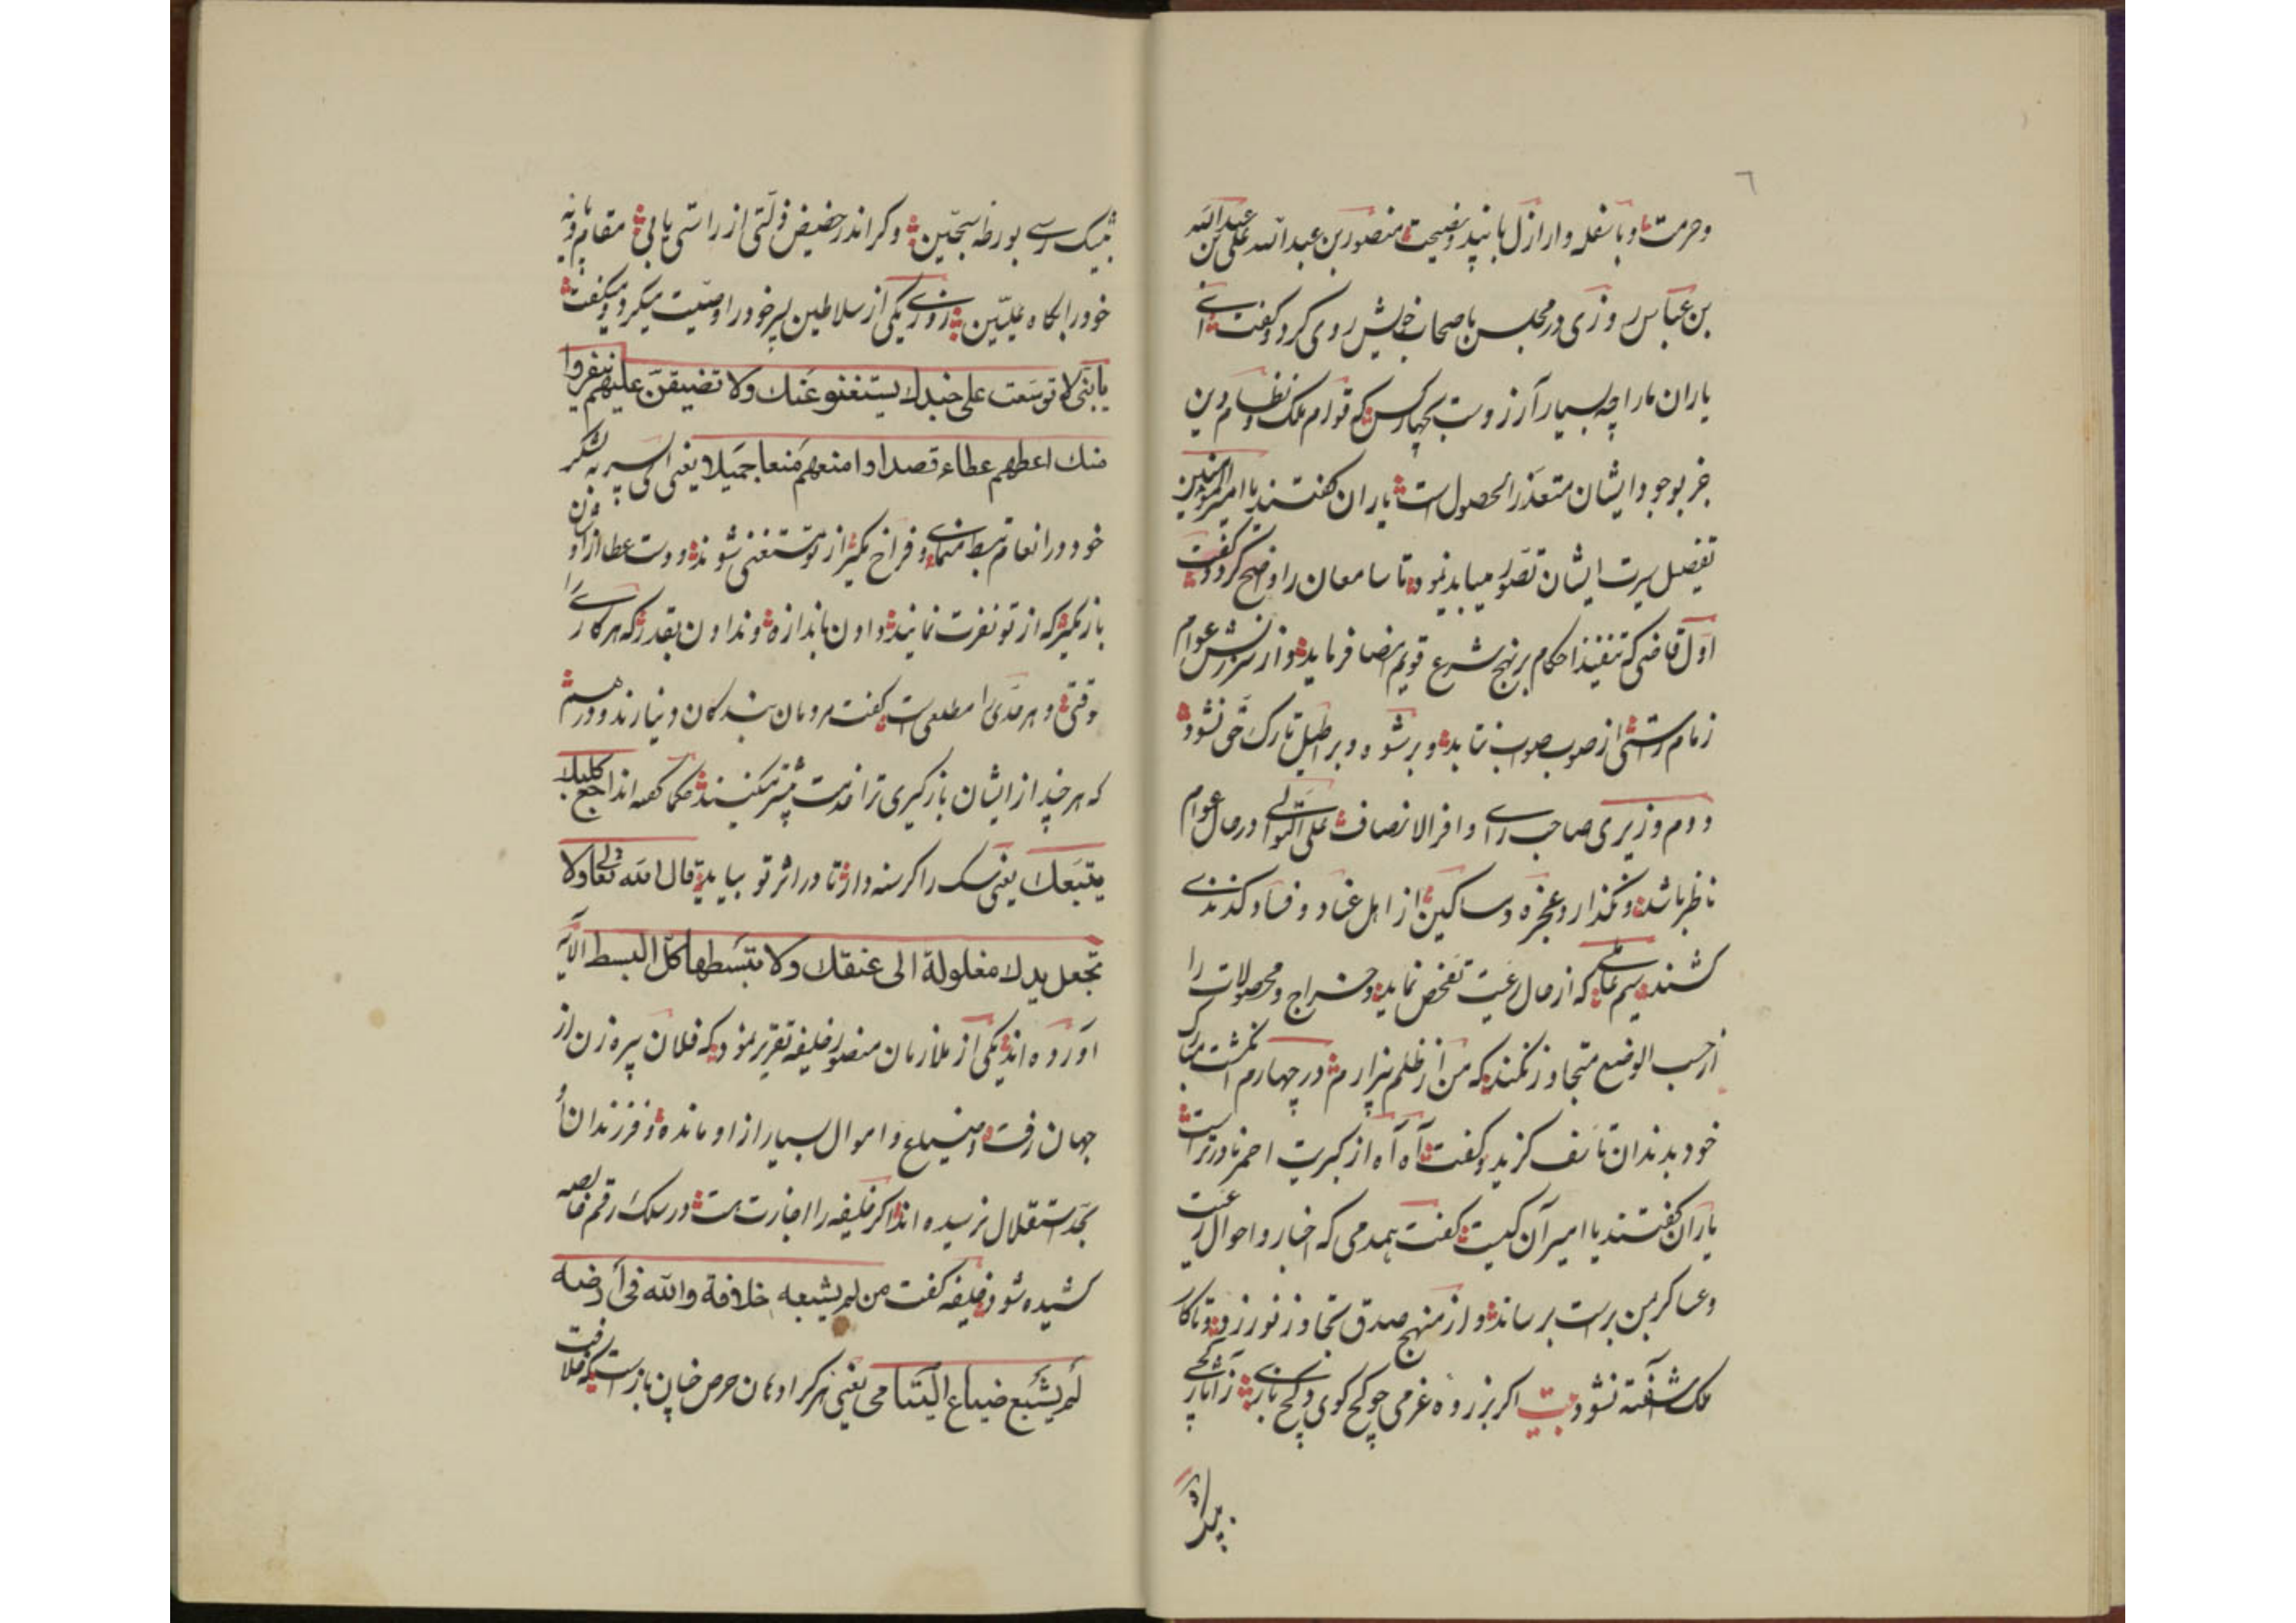 ٦
وحرمت و با سفله و ارازل با نپید و نصیحت منصور بن عبدالله علی بن عبدالله
بن عباس روزی در مجلس باصحاب خویش روی کرد و کفت ای
یاران ما را چه بسیار آرزوست بچهار کس که قوام ملک و نظام دین
جز بوجود ایشان متعذر الحصول است یاران کفتند یا امیر المؤمنین
تفصیل سیرت ایشان تصور میباید نمود تا سامعان را واضح کردد کفت
اول قاضی که تنفیذ احکام بر نهج شرع قویم امضا فرماید و از سرزنش عوام
زمام راستی از صوب صواب نتابد و برشوه و براطیل تارک حق نشود
دوم وزیری صاحب رای وافر الانصاف علی التوالی در حال عوام
ناظر باشد و نکذارد عجزه و مساکین از اهل عناد و فساد کزندی
کشند سیم عاملی که از حال رعیت تفحص نماید و خراج و محصولات را
از حسب الوضع متجاوز نکند که من از ظلم بیزارم در چهارم انکشت مبارک
خود بدندان تاسف کزید و کفت آه آه از کبریت احمر نادرتر است
یاران کفتند یا امیر آن کیست کفت همدمی که اخبار و احوال رعیت
و عساکر بمن براست برساند و از منهج صدق تجاوز نورزد تا کار
ملک آشفته نشود بیت اکر بزروه عزمی چو کج کوی و کج بازی ز آثار کجی
بیک
بیک رسی بورطه سجین و کر اندر حضیض ذلتی از راستی یابی مقام و پایه
خود را بکاه علیین روزی یکی از سلاطین پسر خود را وصیت میکرد و میکفت
یا بنی لا توسعت علی جندك یستغنو عنك ولا تضیقن علیهم ینفروا
منك اعطهم عطاء قصدا و امنعهم منعا جمیلا یعنی ای پسر به لشکر
خود در انعام تبسط منمای و فراخ مکیر از تو مستغنی شوند و دست عطا از او
باز مکیر که از تو نفرت نمایند دادن باندازه و ندادن بقدر که هر کاری را
وقتی و هر مدی را مطلعی است کفت مردمان بندکان دینارند و درهم
که هر چند از ایشان باز کیری ترا خدمت بیشتر میکنند حکما کفته اند اجع کلبك
یتبعك یعنی سک را کرسنه دار تا در اثر تو بیاید قال الله تعالی ولا
تجعل یدك مغلولة الی عنقك ولا تبسطها کل البسط الآیه
آورده اند یکی از ملازمان منصور خلیفه تقریر نمود که فلان پیره زن از
جهان رفت و ضیاع و اموال بسیار از او مانده و فرزندان او
بحد استقلال نرسیده اند اکر خلیفه را اجازت هست در سلک رقم خاصه
کشیده شود خلیفه کفت من لم یشبعه خلافة والله فی أرضه
لم یشبع ضیاع الیتامی یعنی هر کرا دهان حرص چنان باز است که خلافت